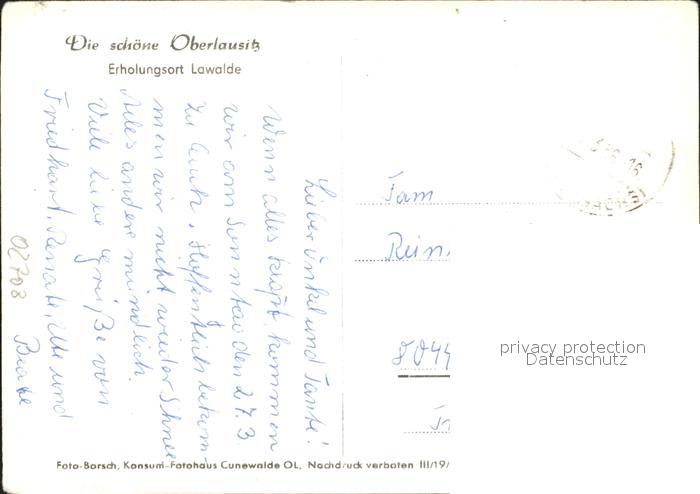 Die schöne Oberlausitz
Erholungsort Lawalde
Lieber Onkel und Tante!
Wenn alles klappt, kommen
wir am Sonntag den 27.3
zu Euch. Hoffentlich bekom-
men wir nicht wieder Schnee
Alles andere mündlich.
Viele liebe Grüße von
Friedhart, Renate, Ute und
Beate
02708
Fam
Rein
8044
privacy protection
Datenschutz
Foto-Borsch, Konsum-Fotohaus Cunewalde OL, Nachdruck verboten III/19/